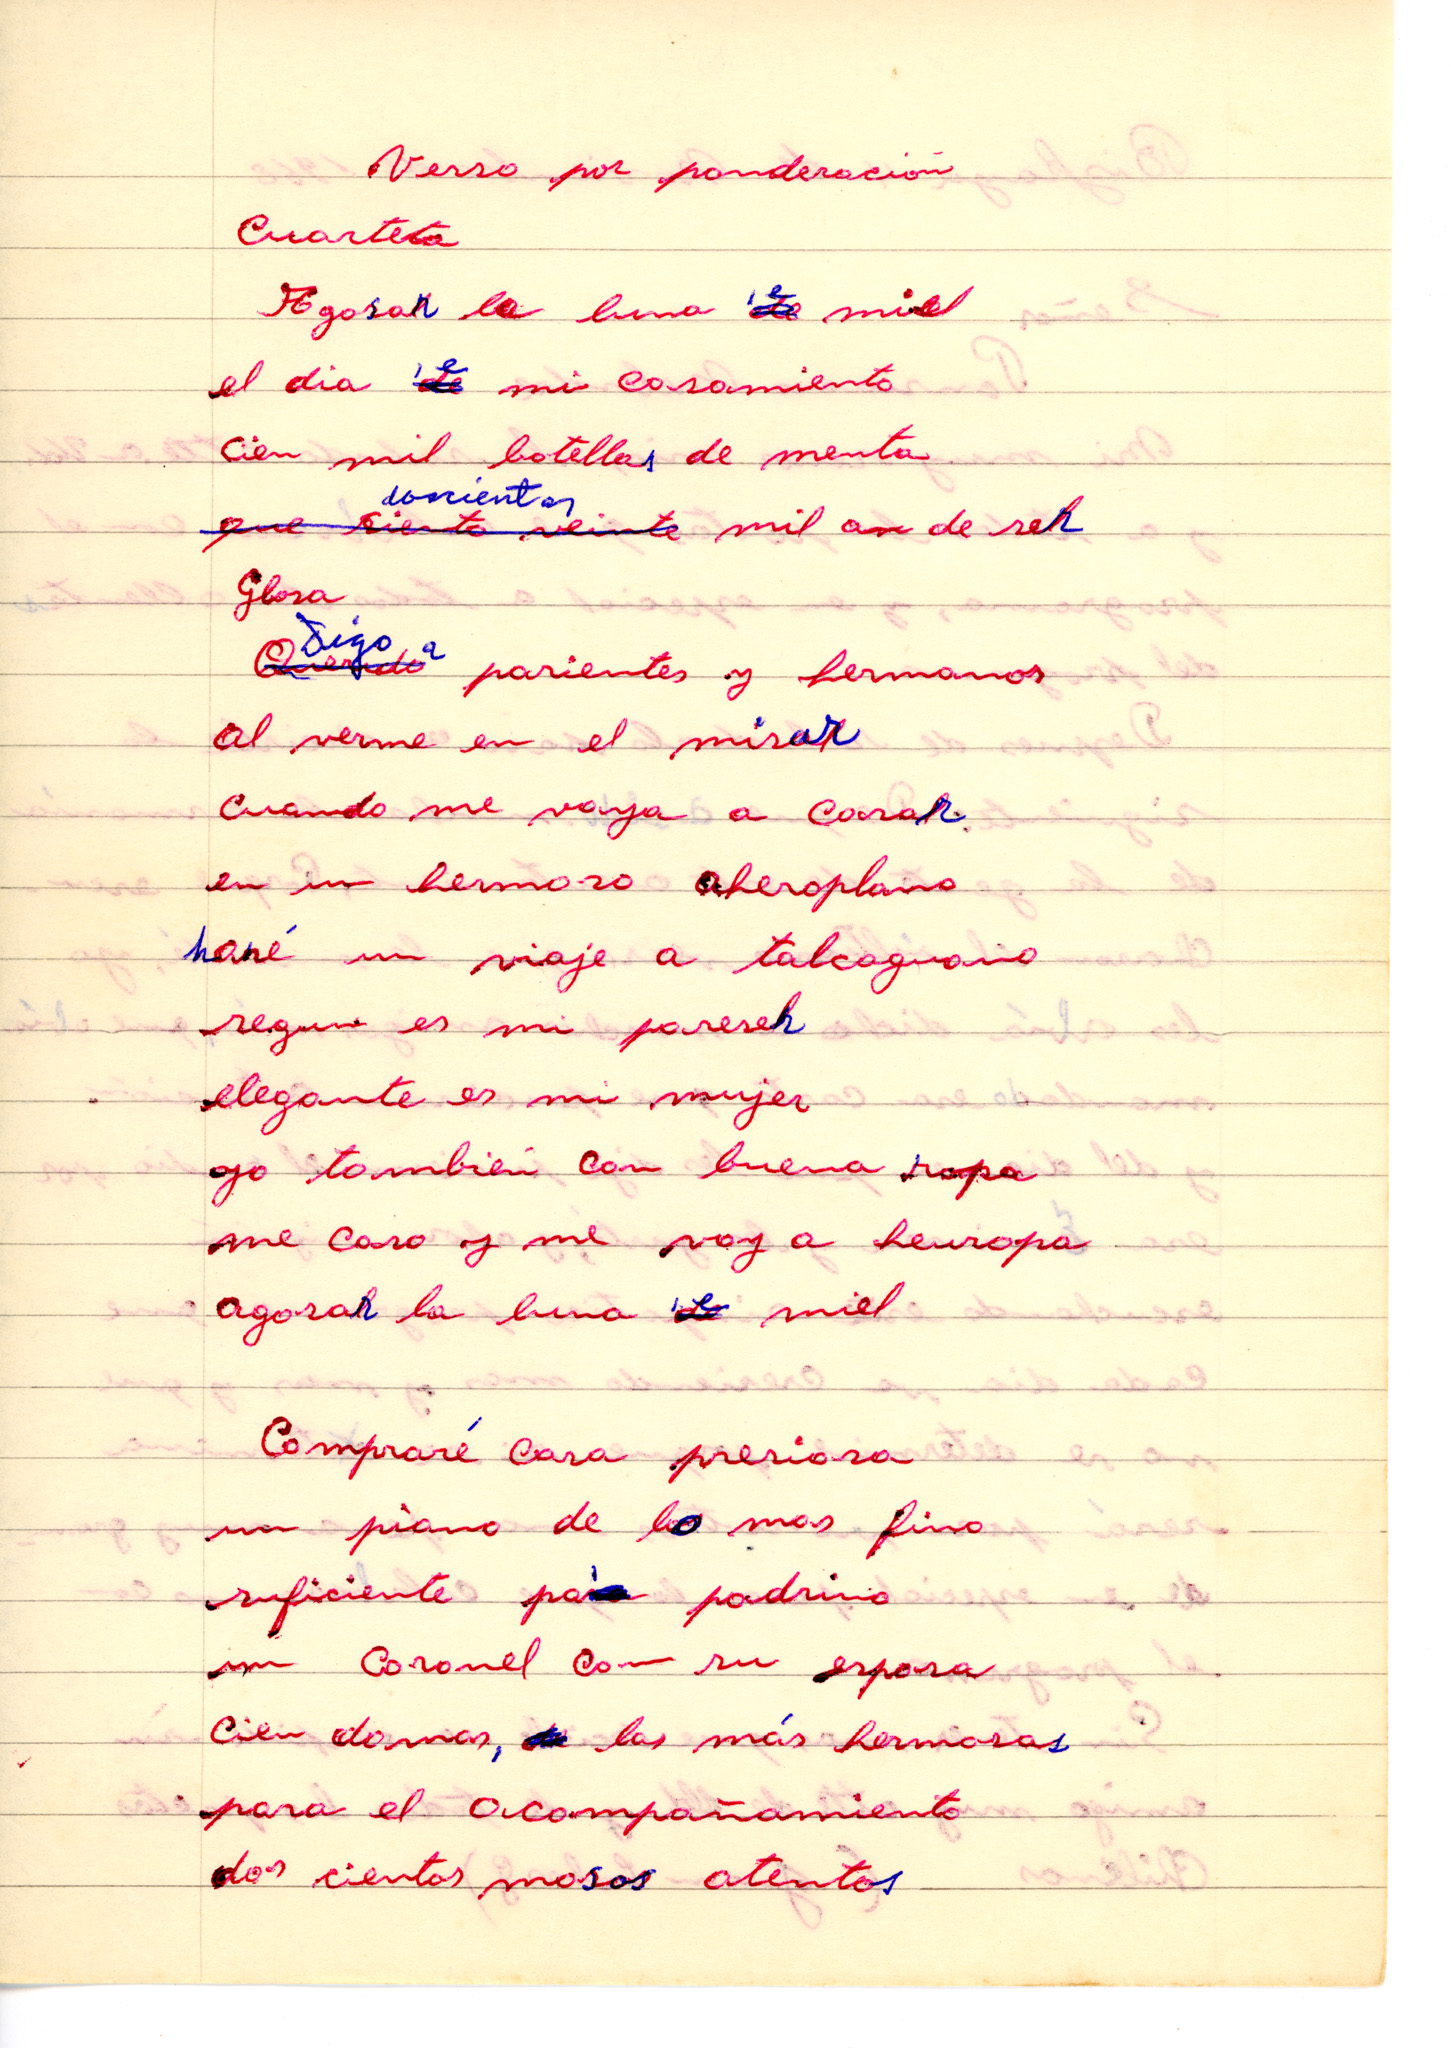 Verso por ponderación
Cuarteta
Agosar la luna 'e miel
el dia 'e mi casamiento
cien mil botellas de menta
doscientos
que siento veinte mil an de ser
Glosa
Digo a
Querido parientes y hermanos
al verme en el mirar
cuando me vaya a casar
en un hermoso aheroplano
haré un viaje a talcaguano
segun es mi pareser
elegante es mi mujer
yo también con buena ropa
me caso y me voy a heuropa
agosar la luna 'e miel
Compraré casa presiosa
un piano de lo mas fino
suficiente pa' padrino
un Coronel con su esposa
cien damas, las más hermosas
para el acompañamiento
dos cientos mosos atentos